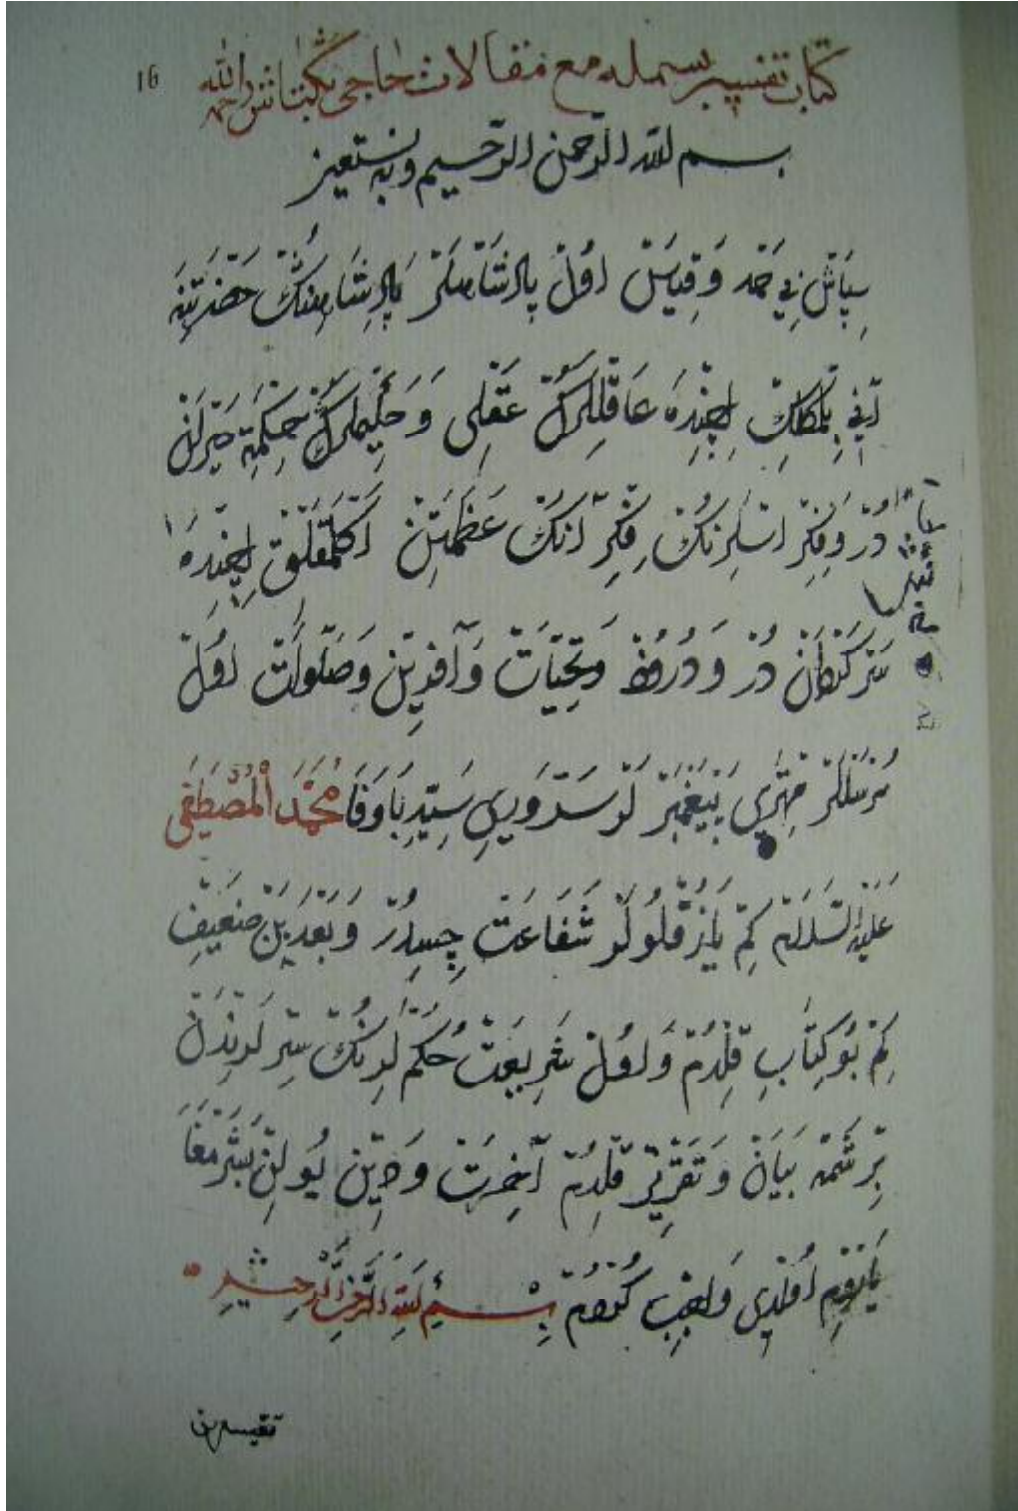 16
كتاب تفسير بسمله مع مقالات حاجى بكتاش رحمه الله
بسم الله الرحمن الرحيم وبه نستعين
سِپَاسْ بِى حَمْد وَ قِيَاسْ اُولْ پَادِشَاهْلَرْ پَادِشَاهِنُكْ حَضْرَتِنَه
اِچِنْدَه عَاقِلْلَرُكْ عَقْلِى وَ حَكِيمْلَرُكْ حِكْمَتِ حَيْرَانْ
دُرْ وَ فِكِرْ اِسْلَرْنُكْ فِكِرِ اَنُكْ عَظَمَتِنْ اَكْلَمَقْلِقْ اِچِنْدَه
سَرْكَرْدَانْ دُرْ وَ دُرُودْ وَ تَحِيَّاتْ وَ آفَرِينْ وَ صَلَوَاتْ اُولْ
مُرْسَلْلَرْ مِهْتَرِى پَيْغَمْبَرْ لَرْ سَرْوَرِى سَيِّدِ بَاوَفَا مُحَمَّدَ الْمُصْطَفَى
عَلَيْهِ السَّلَامْ كِمْ يَازُقْلُولَرْ شَفَاعَتْ چِيسِدُرْ وَ بَعْدَ بَنْ ضَعِيفِ
كِمْ بُو كِتَابِ قِلْدُمْ وَ اُولْ شَرِيعَتْ حُكْمْ لَرِنُكْ سِرْ لَرِنْدَنْ
بِرْ شَمَّه بَيَانْ وَ تَقْرِيرْ قِلْدُمْ آخِرَتْ وَ دِينْ يُولِنْ
اُولْدِى وَاجِبْ كُرْدُمْ بِسْمِ اللّٰهِ الرَّحْمٰنِ الرَّحِيمِ
تفسيرين